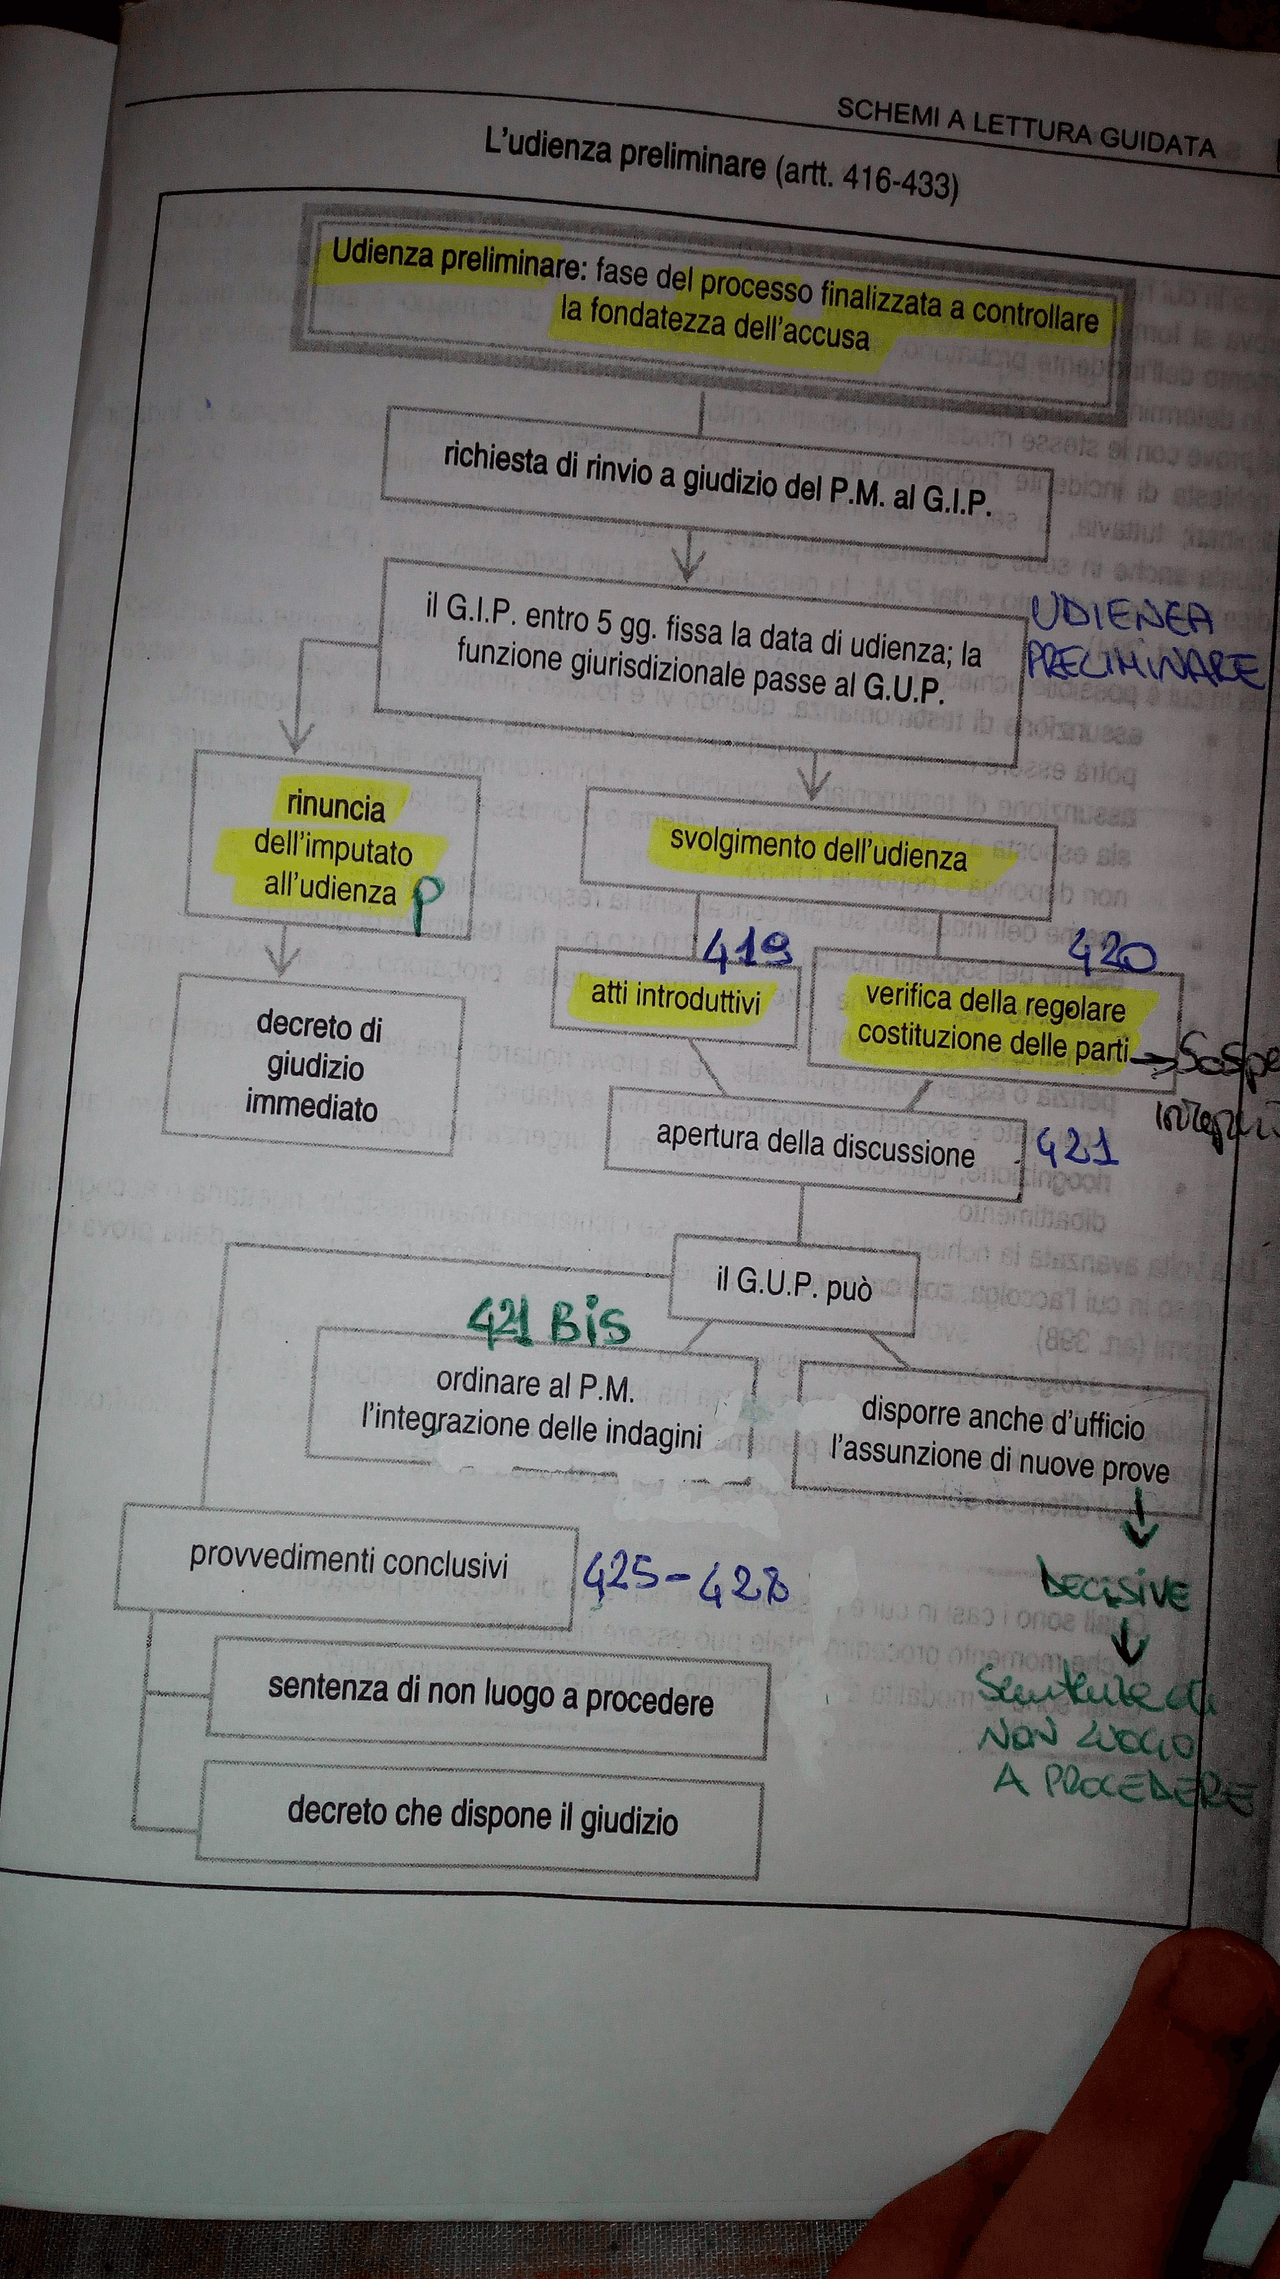 SCHEMI A LETTURA GUIDATA
L'udienza preliminare (artt. 416-433)
Udienza preliminare: fase del processo finalizzata a controllare
la fondatezza dell'accusa
richiesta di rinvio a giudizio del P.M. al G.I.P.
il G.I.P. entro 5 gg. fissa la data di udienza; la
funzione giurisdizionale passe al G.U.P.
UDIENZA
PRELIMINARE
rinuncia
dell'imputato
all'udienza P
svolgimento dell'udienza
419
420
atti introduttivi
verifica della regolare
costituzione delle parti
decreto di
giudizio
immediato
apertura della discussione
421
il G.U.P. può
421 BIS
ordinare al P.M.
l'integrazione delle indagini
disporre anche d'ufficio
l'assunzione di nuove prove
DECISIVE
provvedimenti conclusivi
425-428
NON LUOGO
A PROCEDERE
sentenza di non luogo a procedere
decreto che dispone il giudizio